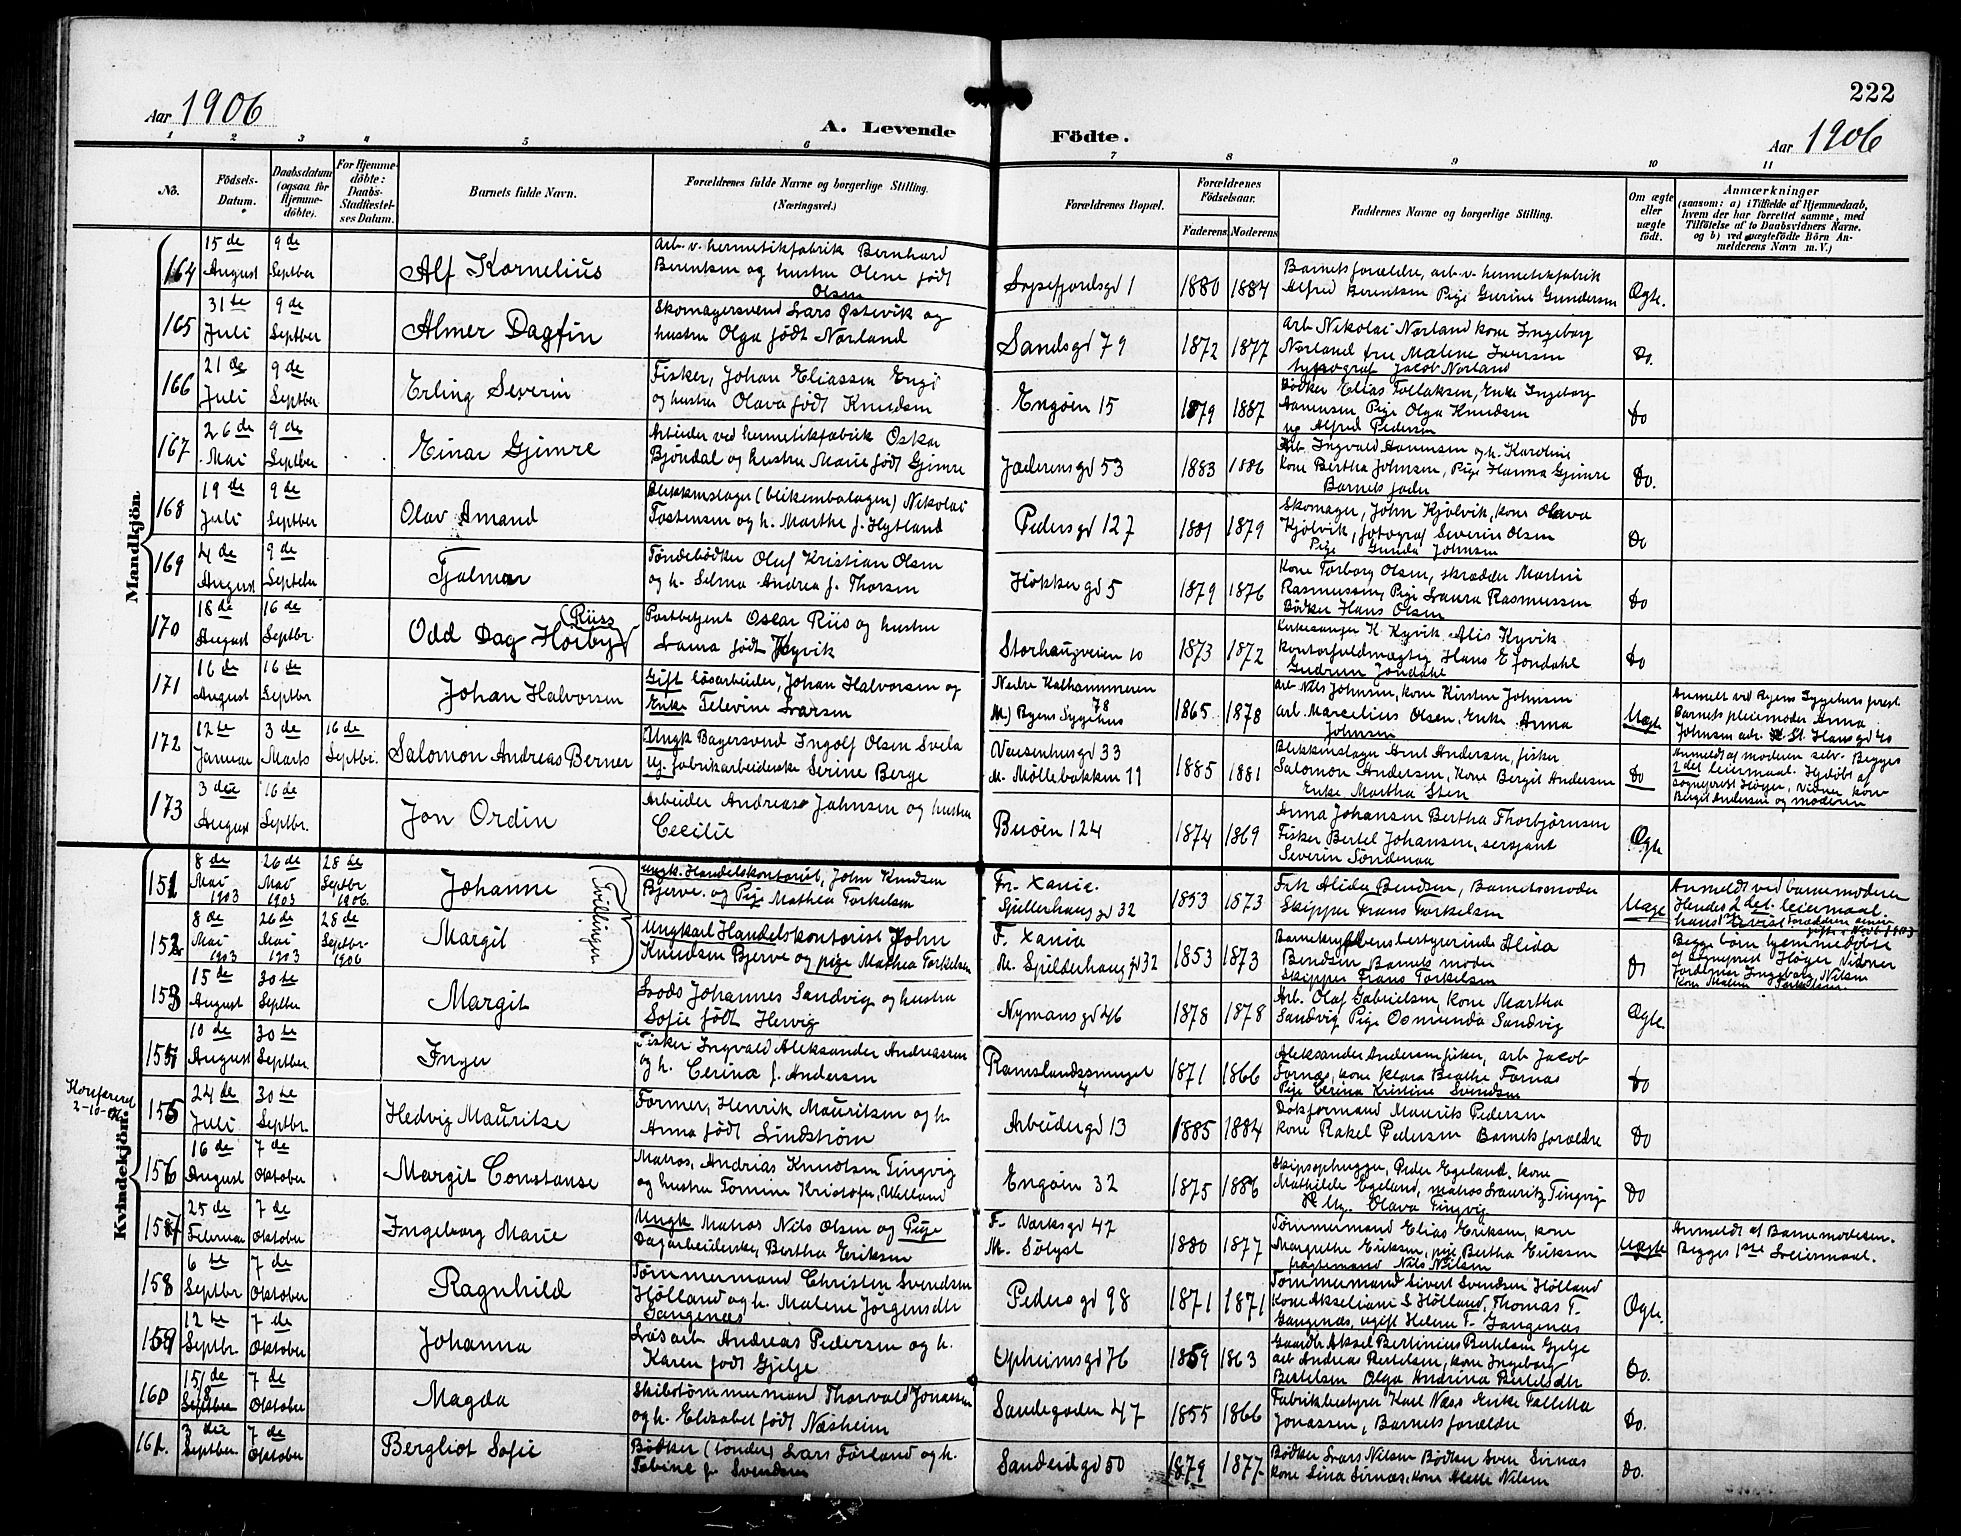 222
Aar 1906
A. Levende Födte.
Aar 1906
1 2 3 4 5 6 7 8 9 10 11
No.
Födsels-Datum.
Daabsdatum (ogsaa for Hjemmedöbte).
For Hjemmedöbte: Daabs-Stadfæstelses Datum.
Barnets fulde Navn.
Forældrenes fulde Navne og borgerlige Stilling. (Næringsvei.)
Forældrenes Bopæl.
Forældrenes Födselsaar.
Faderens. Moderens.
Faddernes Navne og borgerlige Stilling.
Om ægte eller uægte födt.
Anmærkninger (saasom: a) i Tilfælde af Hjemmedaab, hvem der har forrettet samme, med Tilföielse af to Daabsvidners Navne. og b) ved uægtefödte Börn Anmelderens Navn m. V.)
Mandkjön.
164 15de August 9de Septber Alf Kornelius Arb. v. hermetikfabrik Bernhard Berentsen og hustru Olene født Olsen 1880 1884 Barnets forældre, arb. v. hermetikfabrik Alfred Berentsen Pige Gurine Gundersen Ægte.
165 31te Juli 9de Septber Almer Dagfin Skomagersvend Lars Østevik og hustru Olga født Norland Sandsgd 79 1872 1877 Arb Nikolai Norland kone Ingeborg Norland fru Malene Iversen typograf Jacob Norland Do.
166 21de Juli 9de Septber Erling Severin Fisker, Johan Eliassen Engö og hustru Olava født Knudsen Engöen 15 1879 1887 Bödker Elias Tollaksen, Enke Ingeborg Aanensen Pige Olga Knudsen Alfred Pedersen Do
167 26de Mai 9de Septber Einar Gjimre Arbeider ved hermetikfabrik Oskar Bjöndal og hustru Marie født Gjimre Jæderensgd 53 1883 1886 Arb. Ingvald Aanensen og h. Karoline kone Bertha Johnsen, Pige Hanna Gjimre Barnets fader Do.
168 19de Juli 9de Septber Olav Amand Blikkenslager (blikembalagen) Nikolai Tostensen og h. Marthe f. Hytland Pedersgd 127 1881 1879 Skomager, John Kjölvik, kone Olava Kjölvik, fotograf Severin Olsen Pige Gunda Johnsen Do
169 4de August 9de Septebr Tjalmar Töndebödker Oluf Kristian Olsen og h. Selma Andrea f. Thorsen Hökkergd 5 1879 1876 Kone Torborg Olsen, skrædder Martin Rasmussen, Pige Laura Rasmussen Bödker Hans Olsen Do
170 18de August 16de Septbr. Odd Dag Hörby (Riiss) Postbetjent Oscar Riis og hustru Laura født Kyvik Storhaugveien 10 1873 1872 Kirkesanger K. Kyvik Alis Kyvik kontorfuldmægtig Hans E Jondahl Gudrun Jondahl Do
171 16de August 16de Septbr Johan Halvorsen Gift løsarbeider, Johan Halvorsen og Enke Televine Larsen Nedre Kalhammeren 78 M) Byens Sygehus 1865 1878 Arb Nils Johnsen, kone Kirsten Johnsen arb. Marcelius Olsen, Enke Anna Johnsen Uægte Anmeldt ved Byens Sygehus prest Barnets pleiemoder Anna Johnsen adr. St. Hansgd 40
172 12te Januar 3de Marts 16de Septbr. Salomon Andreas Berner Ungk Bagersvend Ingolf Olsen Svela Ug. fabrikarbeiderske Serine Berge Vaisenhusgd 33 M. Möllebakken 11 1885 1881 Blikkenslager Arnt Andersen, fisker Salomon Andersen, Kone Bergit Andersen Enke Martha Sten Do Anmeldt af moderen selv. Begges 2det leiermaal. Hjdöbt af sogneprest Höyer, Vidner kone Bergit Andersen og moderen
173 3die August 16de Septbr. Jon Ordin Arbeider Andreas Johnsen og hustru Cecilie Buöen 124 1874 1869 Anna Johansen Bertha Thorbjörnsen Fisker Bertel Johansen, sersjant Severin Söndenaa Ægte
Kvindekjön.
Konfereret 2-10-06
151 8de Mai 1903 26de Mai 1903 28de Septbr 1906. Johanne (Tvillinger) Ungk. Handelskontorist, John Knudsen Bjerve. og Pige Mathea Torkelsen Fr. Xania. Spillerhaugsgd 32 1853 1873 Frk Alida Bendsen, Barnetsmoder Skipper Frans Torkelsen Uægte Anmeldt ved barnemoderen Hendes 2det leiermaal.
152 8de Mai 1903 26de Mai 1903 28de Septbr. 1906 Margit Ungkarl Handelskontorist John Knudsen Bjerve og pige Mathea Torkelsen F. Xania M. Spilderhausgd 32 1853 1873 Barnekrybbens bestyrerinde Alida Bendsen Barnets moder Skipper Frans Torkelsen Do Begge børn hjemmedöbte af Sogneprest Höyer Vidner Jordemor Ingeborg Nilsen Kone Malene Torkelsen
153 15de August 30te Septber Margit Johannes Sandvig og hustru Sofie født Hervig Nymansgd 46 1878 1878 Arb. Olaf Gabrielsen, kone Martha Sandvig Pige Osmunda Sandvig Ægte.
10de August 30te Septber Inger Fisker Ingvald Aleksander Andreassen og h. Cerina f. Andersen Ramslandssmuget 4 1871 1866 Aleksander Andersen fisker, arb Jacob Fornæs, kone Klara Beathe Fornæs Pige Cerina Kristine Svendsen Do
155 24de Juli 30te Septbr Hedvig Mauritse Former, Henrik Mauritsen og h. Anna født Lindström Arbeidergd 13 1885 1884 Dokformand Maurits Pedersen kone Rakel Pedersen Barnets forældre Do
156 16de August 7de Oktober Margit Constanse Matros, Andrias Knudsen Tingvig og hustru Tomine Kristofa, Ulland Engöin 32 1875 1886 Skipsophugger, Peder Egeland, kone Mathilde Egeland, matros Lauritz Tingvig Ug. Olava Tingvig Do
157 25de Februar 7de Oktober Ingeborg Marie Ungk Matros Nils Olsen og Pige Dagarbeiderske, Bertha Eriksen F. Værksgd 47 M. Sölyst 1880 1877 Tömmermand Elias Eriksen, kone Margrethe Eriksen, pige Bertha Eriksen Nils Nilsen Uægte Anmeldt af Barnemoderen. Begges 1ste Leiermaal.
158 6te Septbr 7de Oktober Ragnhild Tömmermand Christen Svendsen Hölland og h. Malene Jörgensdtr Gangenæs Pedersgd 98 1871 1871 Tömmermand Sivert Svendsen Hölland Kone Akseliane S Hölland, Thomas T. Gangenæs, ugift Helene T. Gangenæs Ægte.
159 12te Septbr. 7de Oktober Johanna Løsarb Andreas Pedersen og h. Karen født Gjelje Opheimsgd 76 1859 1863 Gaardbr. Aksel Bertinius Bertelsen Gjelje arb Andreas Bertelsen, kone Ingeborg Bertelsen Olga Andrina Bertelsdtr Do.
160 15de Septber 7de Oktober Magda Skibstömmermand Thorvald Jonassen og h. Elisabet født Næsheim Sandegaden 47 1855 1866 Fabrikbestyrer Karl Næss Enke Talletta Jonassen, Barnets forældre Do.
161. 3die Septber. 7de Oktober Bergliot Sofie Bödker (tönder) Lars Förland og h. Tobine f. Svendsen Sandeidgd 50 1879 1877 Bödker Lars Nilsen Bödker Sven Sirnæs kone Lina Sirnæs, kone Mette Nilsen Do.